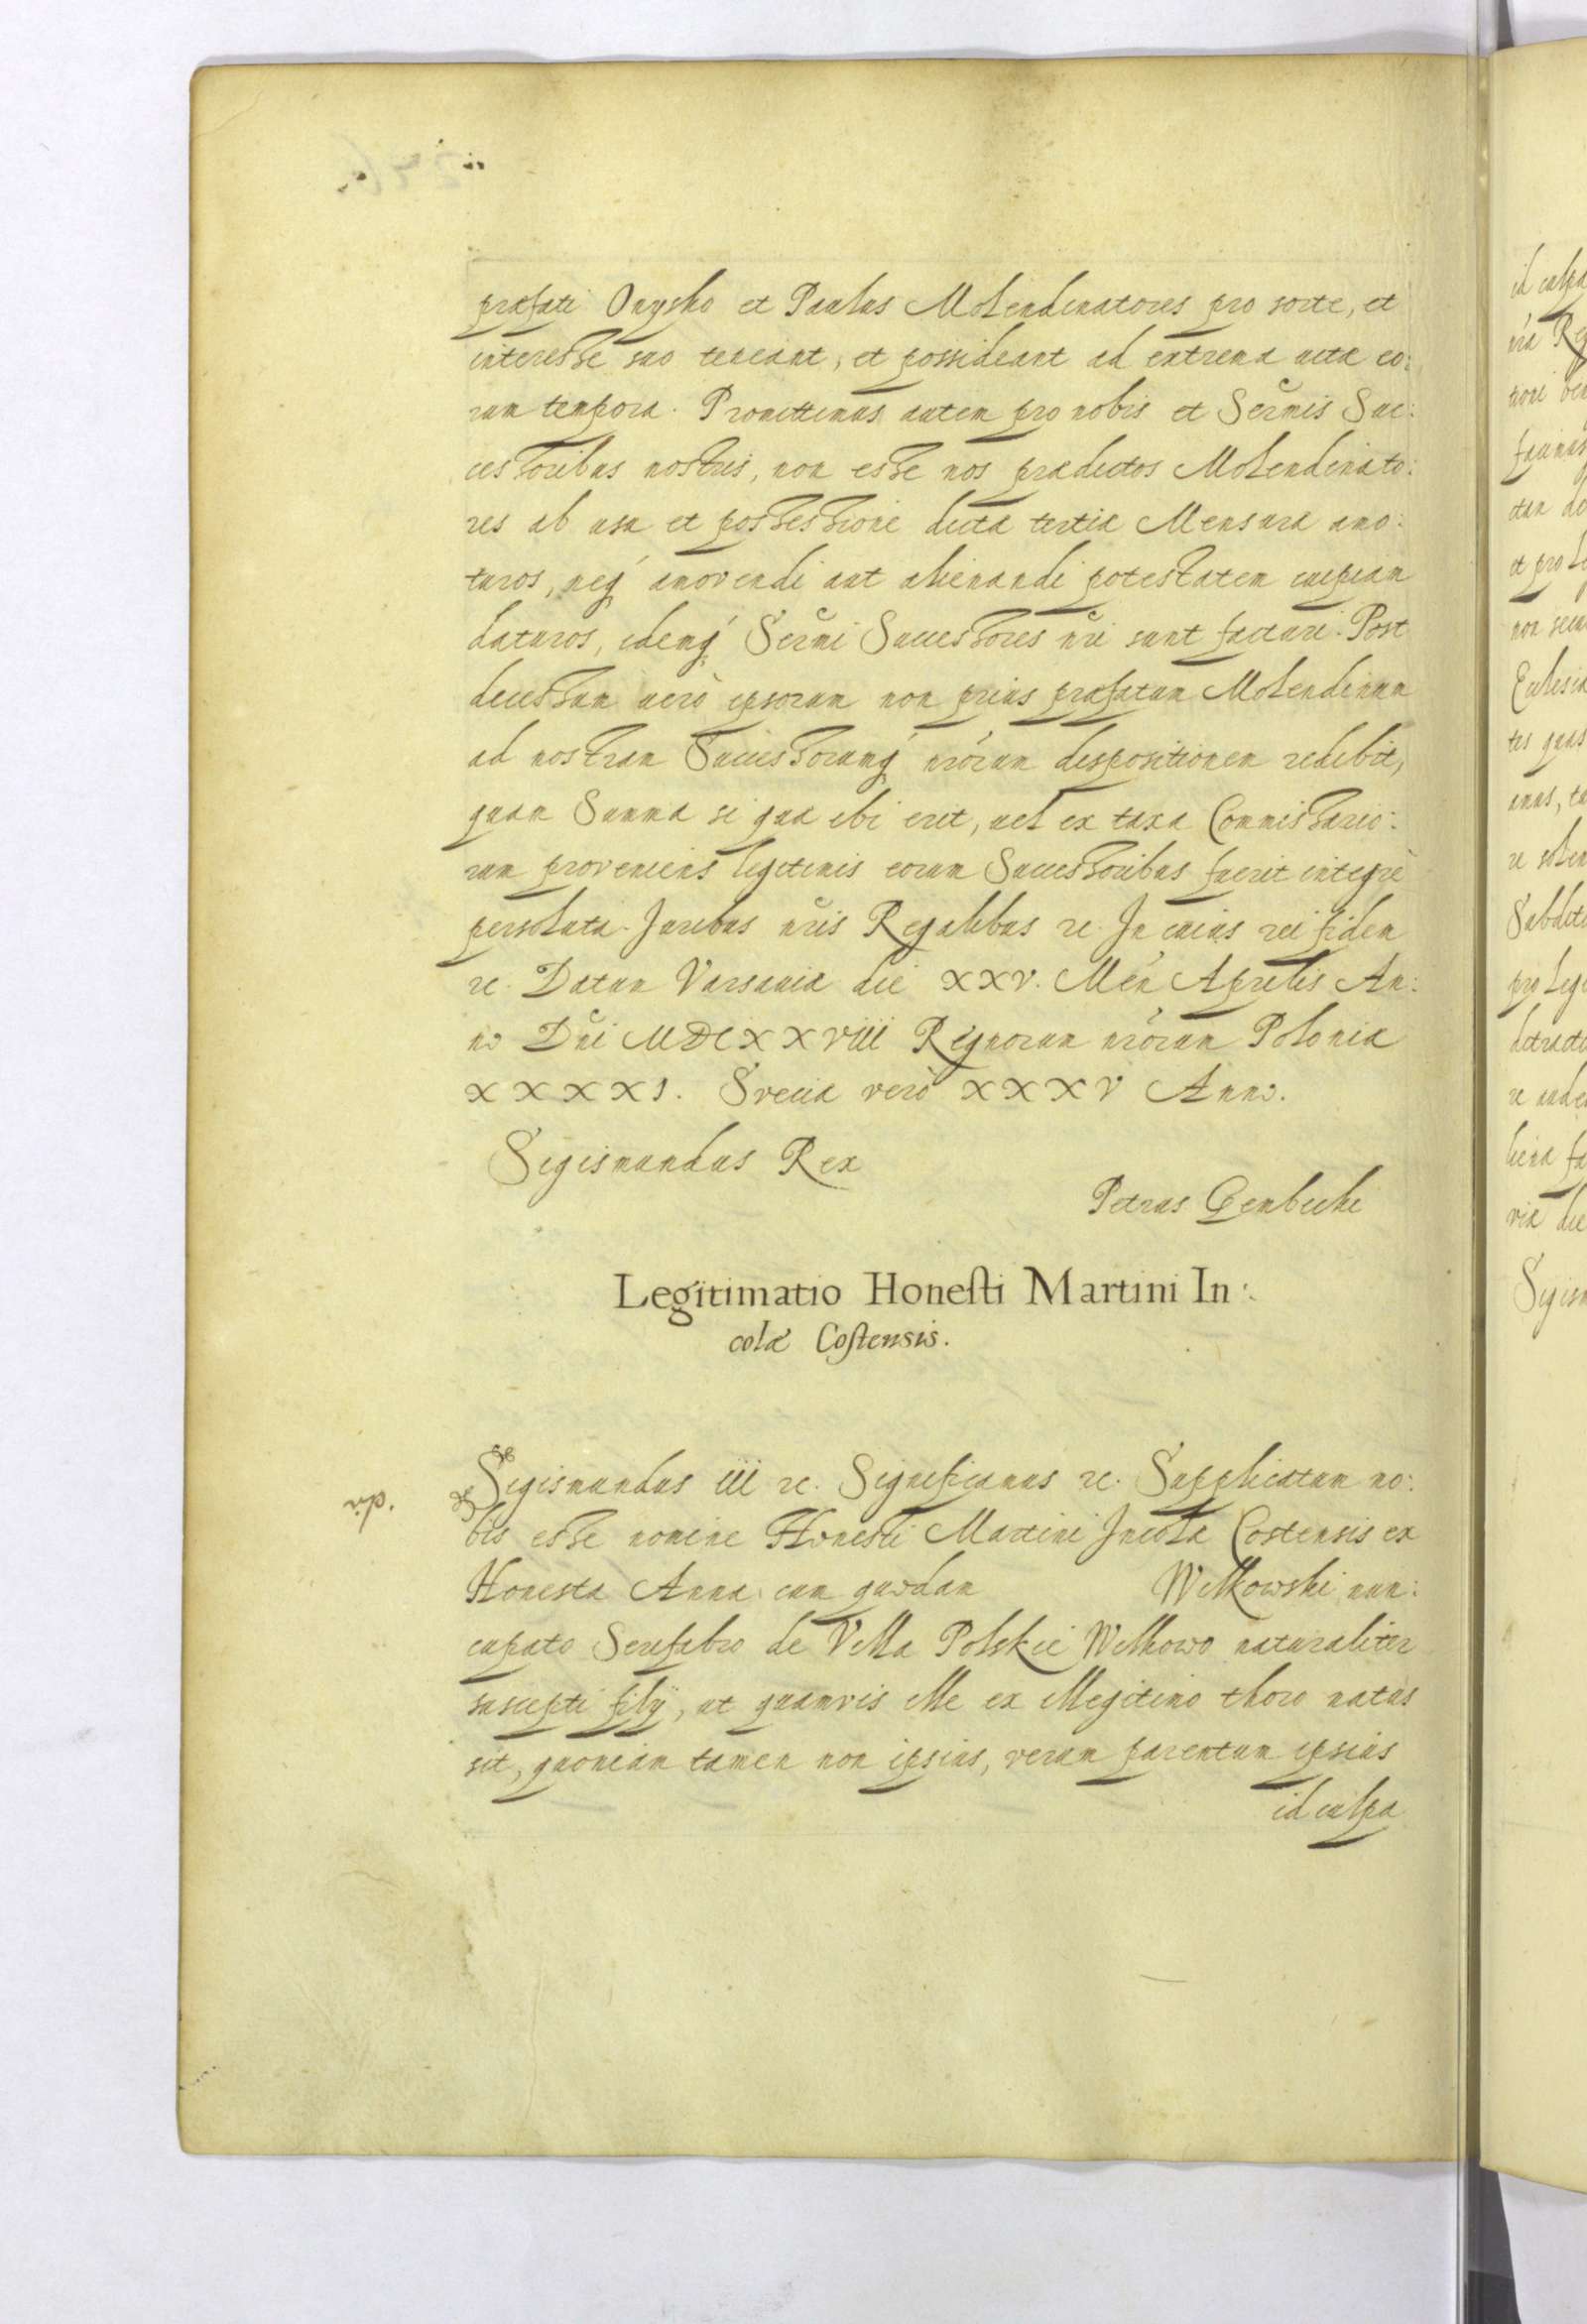 præfati Onysko et Paulus Molendinatores pro sorte, et
interesse suo teneant, et possideant ad extrema uitæ eo:
rum tempora. Promittimus autem pro nobis et Sermis Suc:
cessoribus nostris, non esse nos prædictos Molendinato:
res ab usu et possessione dictæ tertiæ Mensuræ amo:
turos, neq́ amovendi aut alienandi potestatem cuipiam
daturos, idemq́ Sermi Successores nri sunt facturi. Post
decessum uerò ipsorum non prius præfatum Molendinum
ad nostram Successorumq́ nrorum dispositionem redibit,
quam Summa si qua ibi erit, uel ex taxa Commissario:
rum proveniens legitimis eorum Successoribus fuerit integrè
persoluta. Juribus nris Regalibus rc. In cuius rei fidem
rc. Datum Varsauiæ die XXV. Men Aprilis An:
no Dni MDCXXVIII Regnorum nrorum Poloniæ
XXXXI. Sveciæ verò XXXV Anno.
Sigismundus Rex
Petrus Gembicki
Legitimatio Honesti Martini In:
colæ Costensis.
Sigismundus III rc. Significamus rc. Supplicatum no:
bis esse nomine Honesti Martini Incolæ Costensis ex
Honesta Anna cum quodam Wilkowski nun:
cupato Serifabro de Villa Polskie Wilkowo naturaliter
suscepti filij, ut quamvis ille ex illegitimo thoro natus
sit, quoniam tamen non ipsius, verum parentum ipsius
id culpa